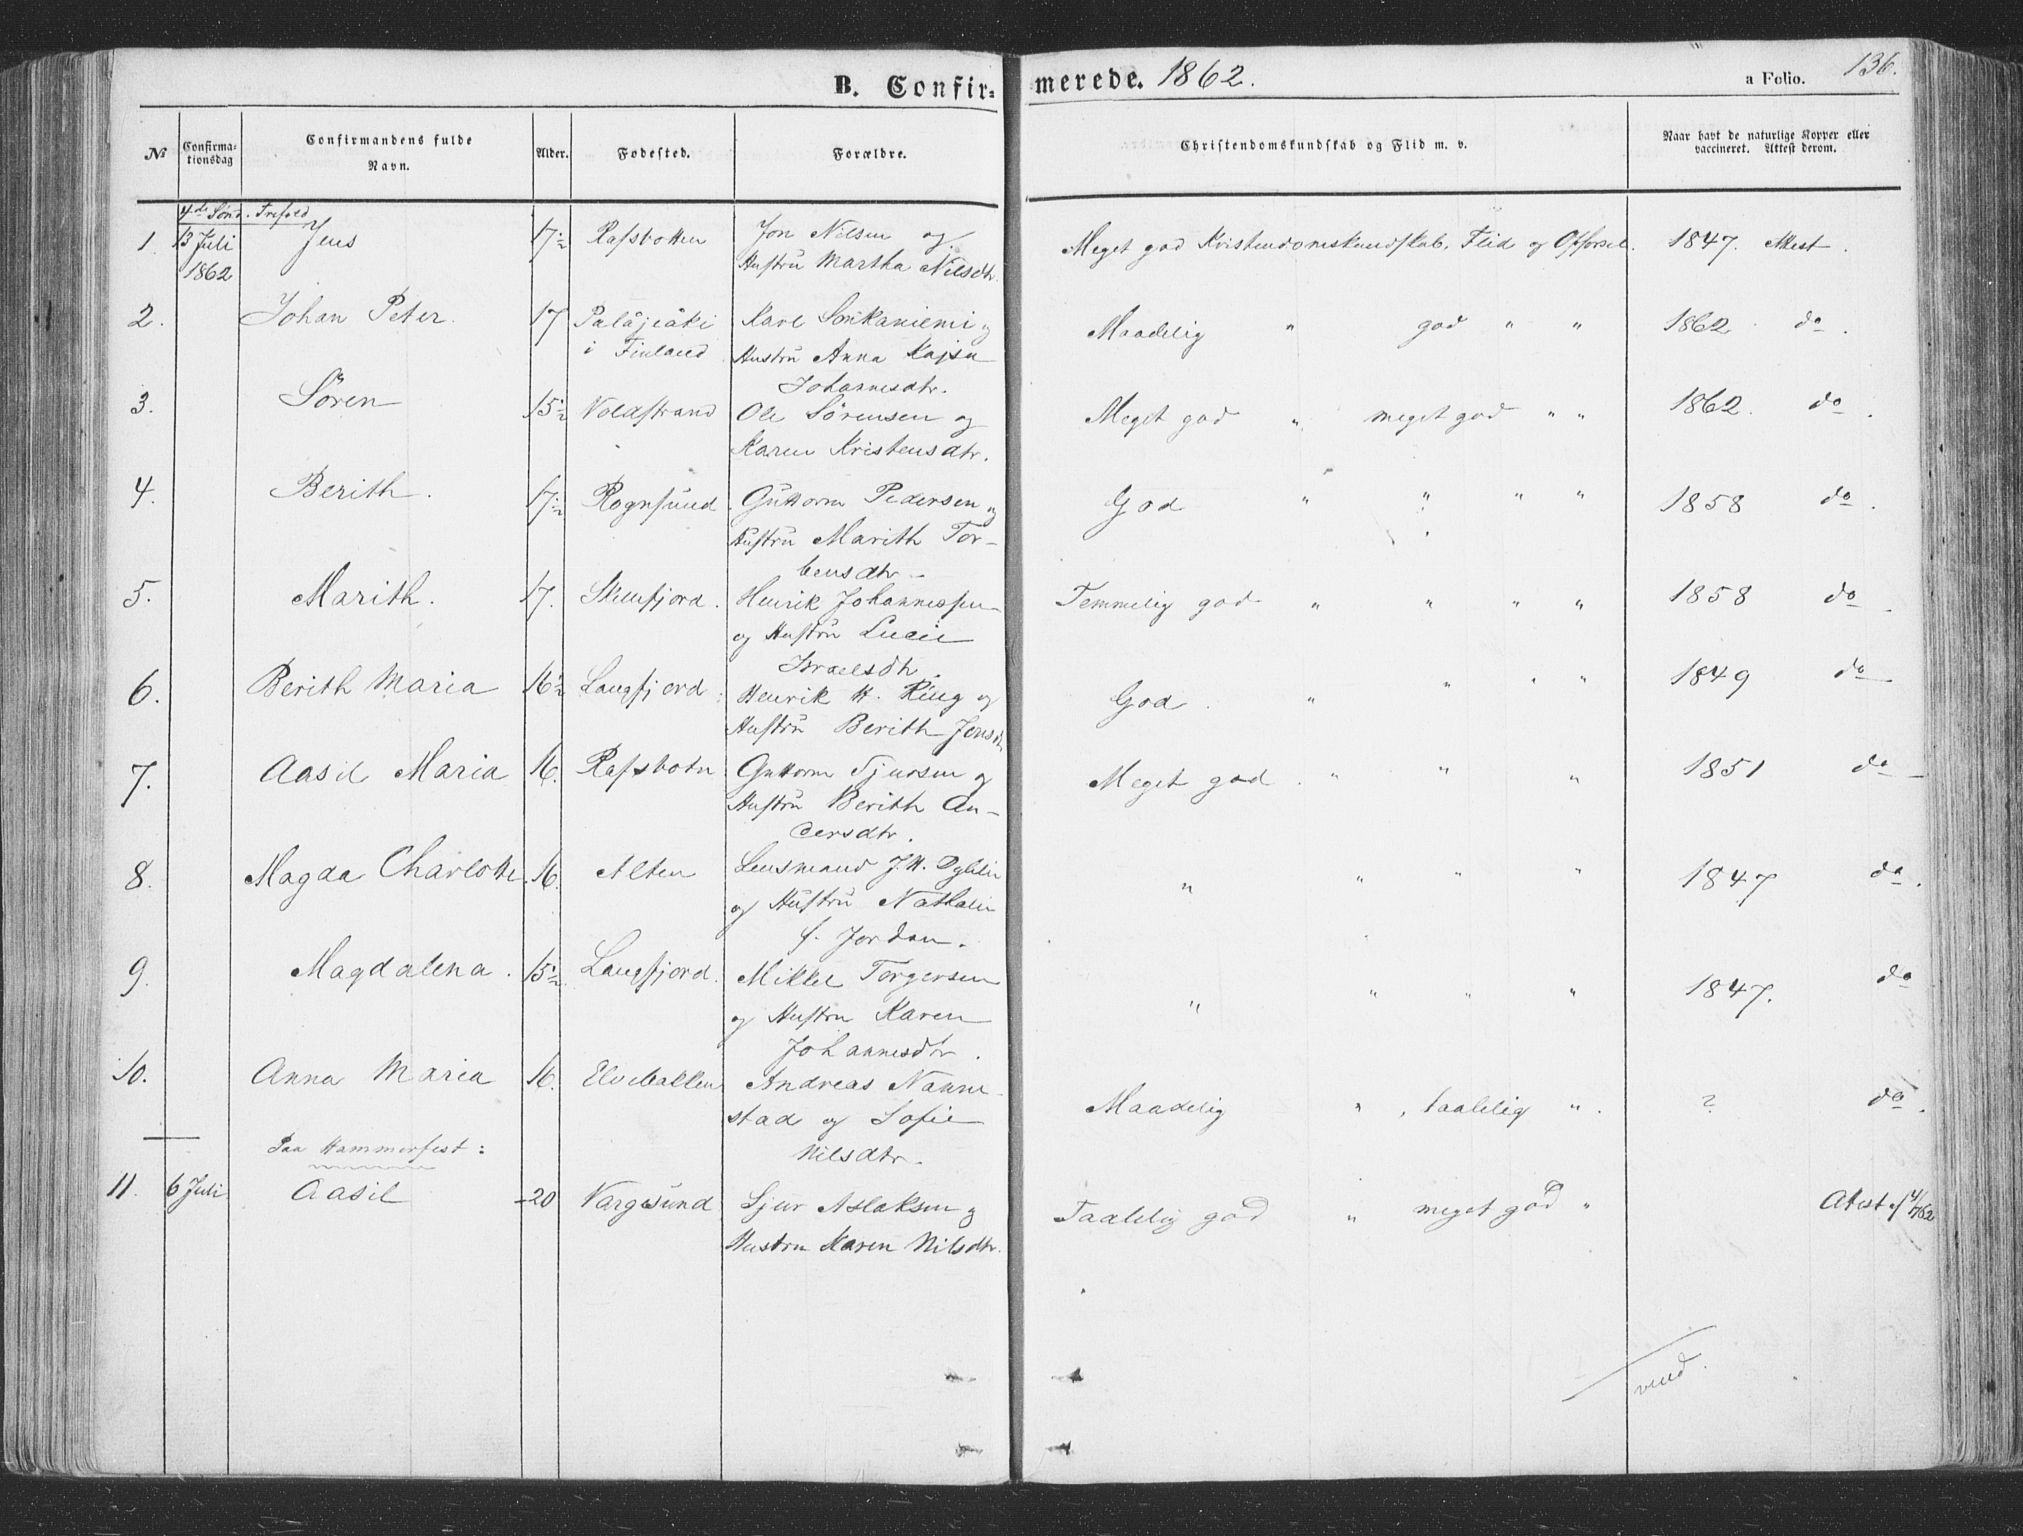 B. Confir=
merede. 1862.
a Folio. 136.
No
Confirma-
tionsdag
Confirmandens fulde
Navn.
Alder.
Fødested.
Forældre.
Christendomskundskab og Flid m. v.
Naar havt de naturlige Kopper eller
vaccineret. Attest derom.
4de Sønd. Trefold
1. 13 Juli Jens 17 1/2 Rafsbotten Jon Nilsen og Meget god Kristendomskundskab, Flid og Opforsel. 1847. Attest.
1862 Hustru Martha Nilsdtr.
2. Johan Peter. 17 Palåjeåki Karl og Maadelig " god " " 1862. do.
i Finland Hustru Anna Kajsa
Johannesdtr.
3. Sören 15 1/2 Voldstrand Ole Sörensen og Meget god " meget god " " 1862. do.
Karen Kristensdtr.
4. Berith. 17 1/2 Rognsund Guttorm Pedersen og God " " " " 1858 do.
Hustru Marith Tor-
bensdtr.
5. Marith. 17. Skillefjord. Henrik Johannessen Temmelig god " " " " 1858 do
og Hustru Lucie
Israelsdtr.
6. Berith Maria 16 1/2 Langfjord. Henrik H. Ring og God. " " " " 1849 do
Hustru Berith Jensdtr
7. Aasil Maria 16. Rafsbotn Guttorm Sjursen og Meget god. " " " 1851 do
Hustru Berith An-
dersdtr.
8. Magda Charlotte. 16. Alten Lensmand J. H. og " " " " 1847 do.
og Hustru Nathalie
f. Jordan.
9. Magdalena. 15 1/2 Langfjord. Mikkel Torgersen " " " " 1847. do
og Hustru Karen
Johannesdtr.
10. Anna Maria 16. Elvebakken Andreas Nanne- Maadelig " , taalelig ". ? do.
stad og Sofie
Nilsdtr.
Paa Hammerfest:
11. 6 Juli Aasil 20 Vargsund Sjur Aslaksen og Taalelig god " meget god " Attest af 4/7 62
Hustru Karen Nilsdtr.
vend.